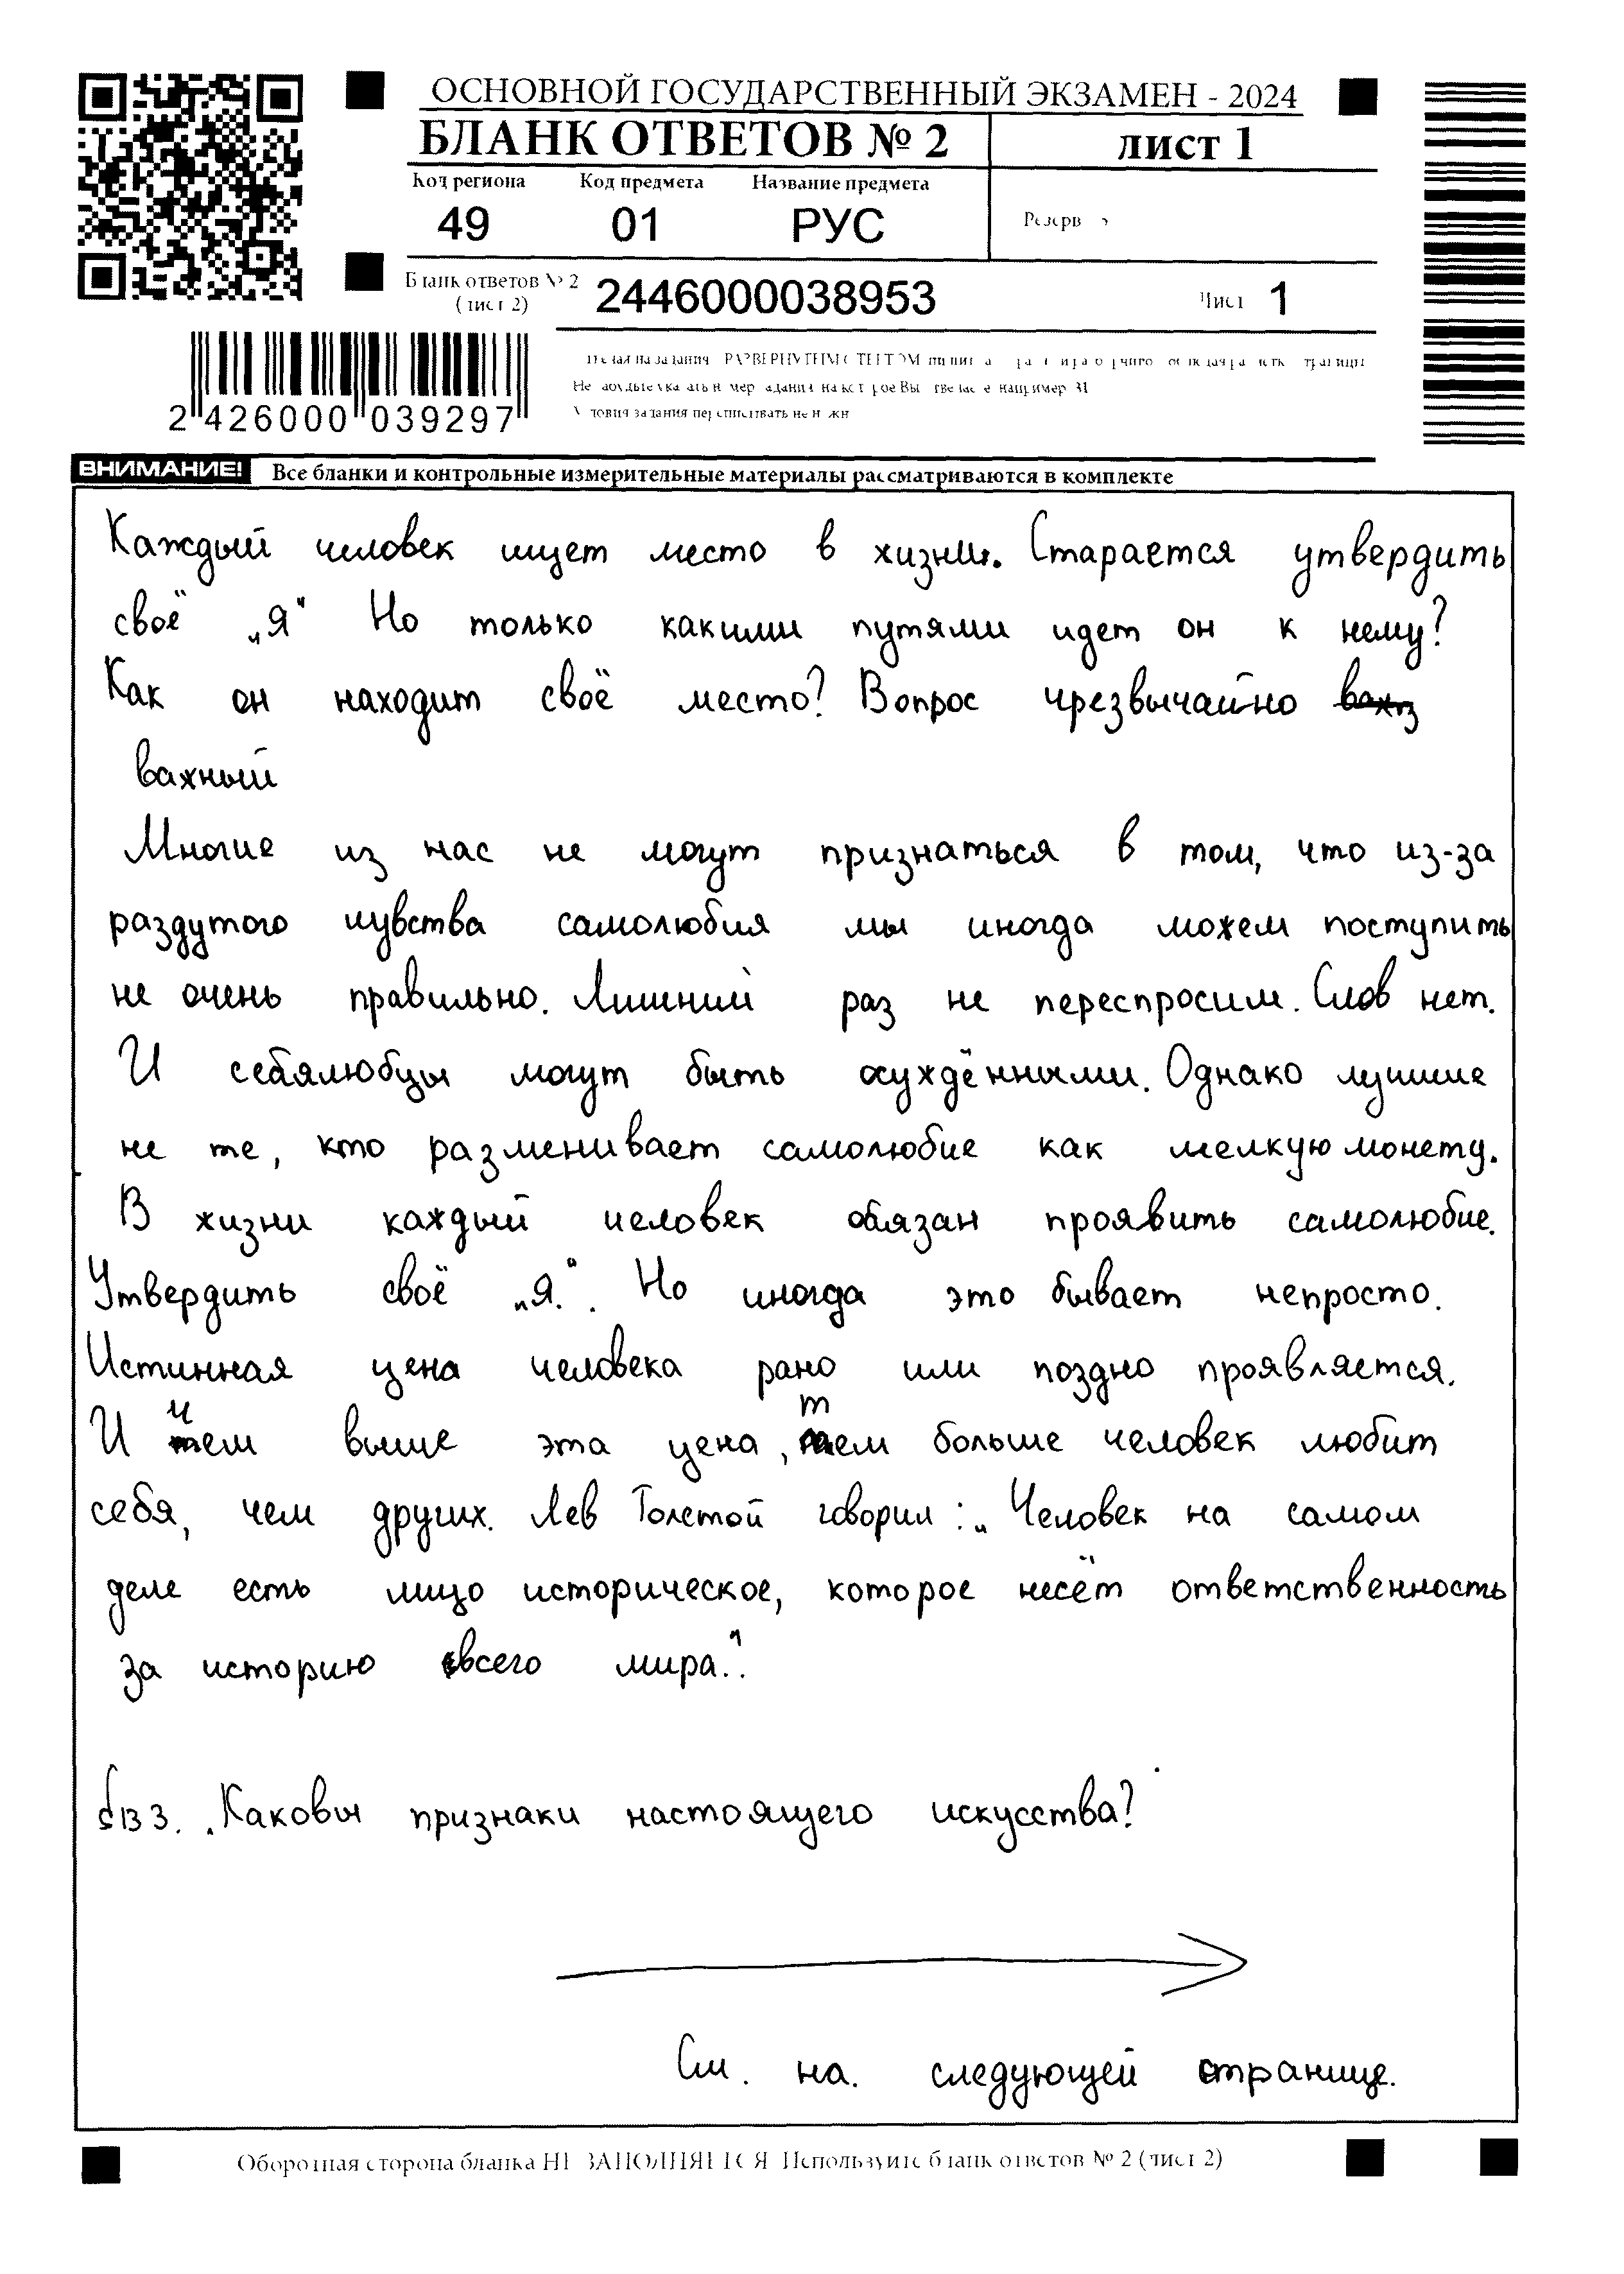 ОСНОВНОЙ ГОСУДАРСТВЕННЫЙ ЭКЗАМЕН - 2024
БЛАНК ОТВЕТОВ № 2 лист 1
Код региона Код предмета Название предмета
49 01 РУС Резерв
Бланк ответов № 2
(лист 2) 2446000038953 Лист 1
2 426000 039297
ВНИМАНИЕ! Все бланки и контрольные измерительные материалы рассматриваются в комплекте
Каждый человек ищет место в жизни. Старается утвердить
своё „Я“ Но только какими путями идет он к нему?
Как он находит своё место? Вопрос чрезвычайно
важный
Многие из нас не могут признаться в том, что из-за
раздутого чувства самолюбия мы иногда можем поступить
не очень правильно. Лишний раз не переспросим. Слов нет.
И себялюбцы могут быть осуждёнными. Однако лучшие
не те, кто разменивает самолюбие как мелкую монету.
В жизни каждый человек обязан проявить самолюбие.
Утвердить своё „Я.“. Но иногда это бывает непросто.
Истинная цена человека рано или поздно проявляется.
И чем выше эта цена, тем больше человек любит
себя, чем других. Лев Толстой говорил: „Человек на самом
деле есть лицо историческое, которое несёт ответственность
за историю всего мира.“.
13 3. Каковы признаки настоящего искусства?
См. на. следующей странице.
Оборотная сторона бланка НЕ ЗАПОЛНЯЕТСЯ. Используйте бланк ответов № 2 (лист 2)